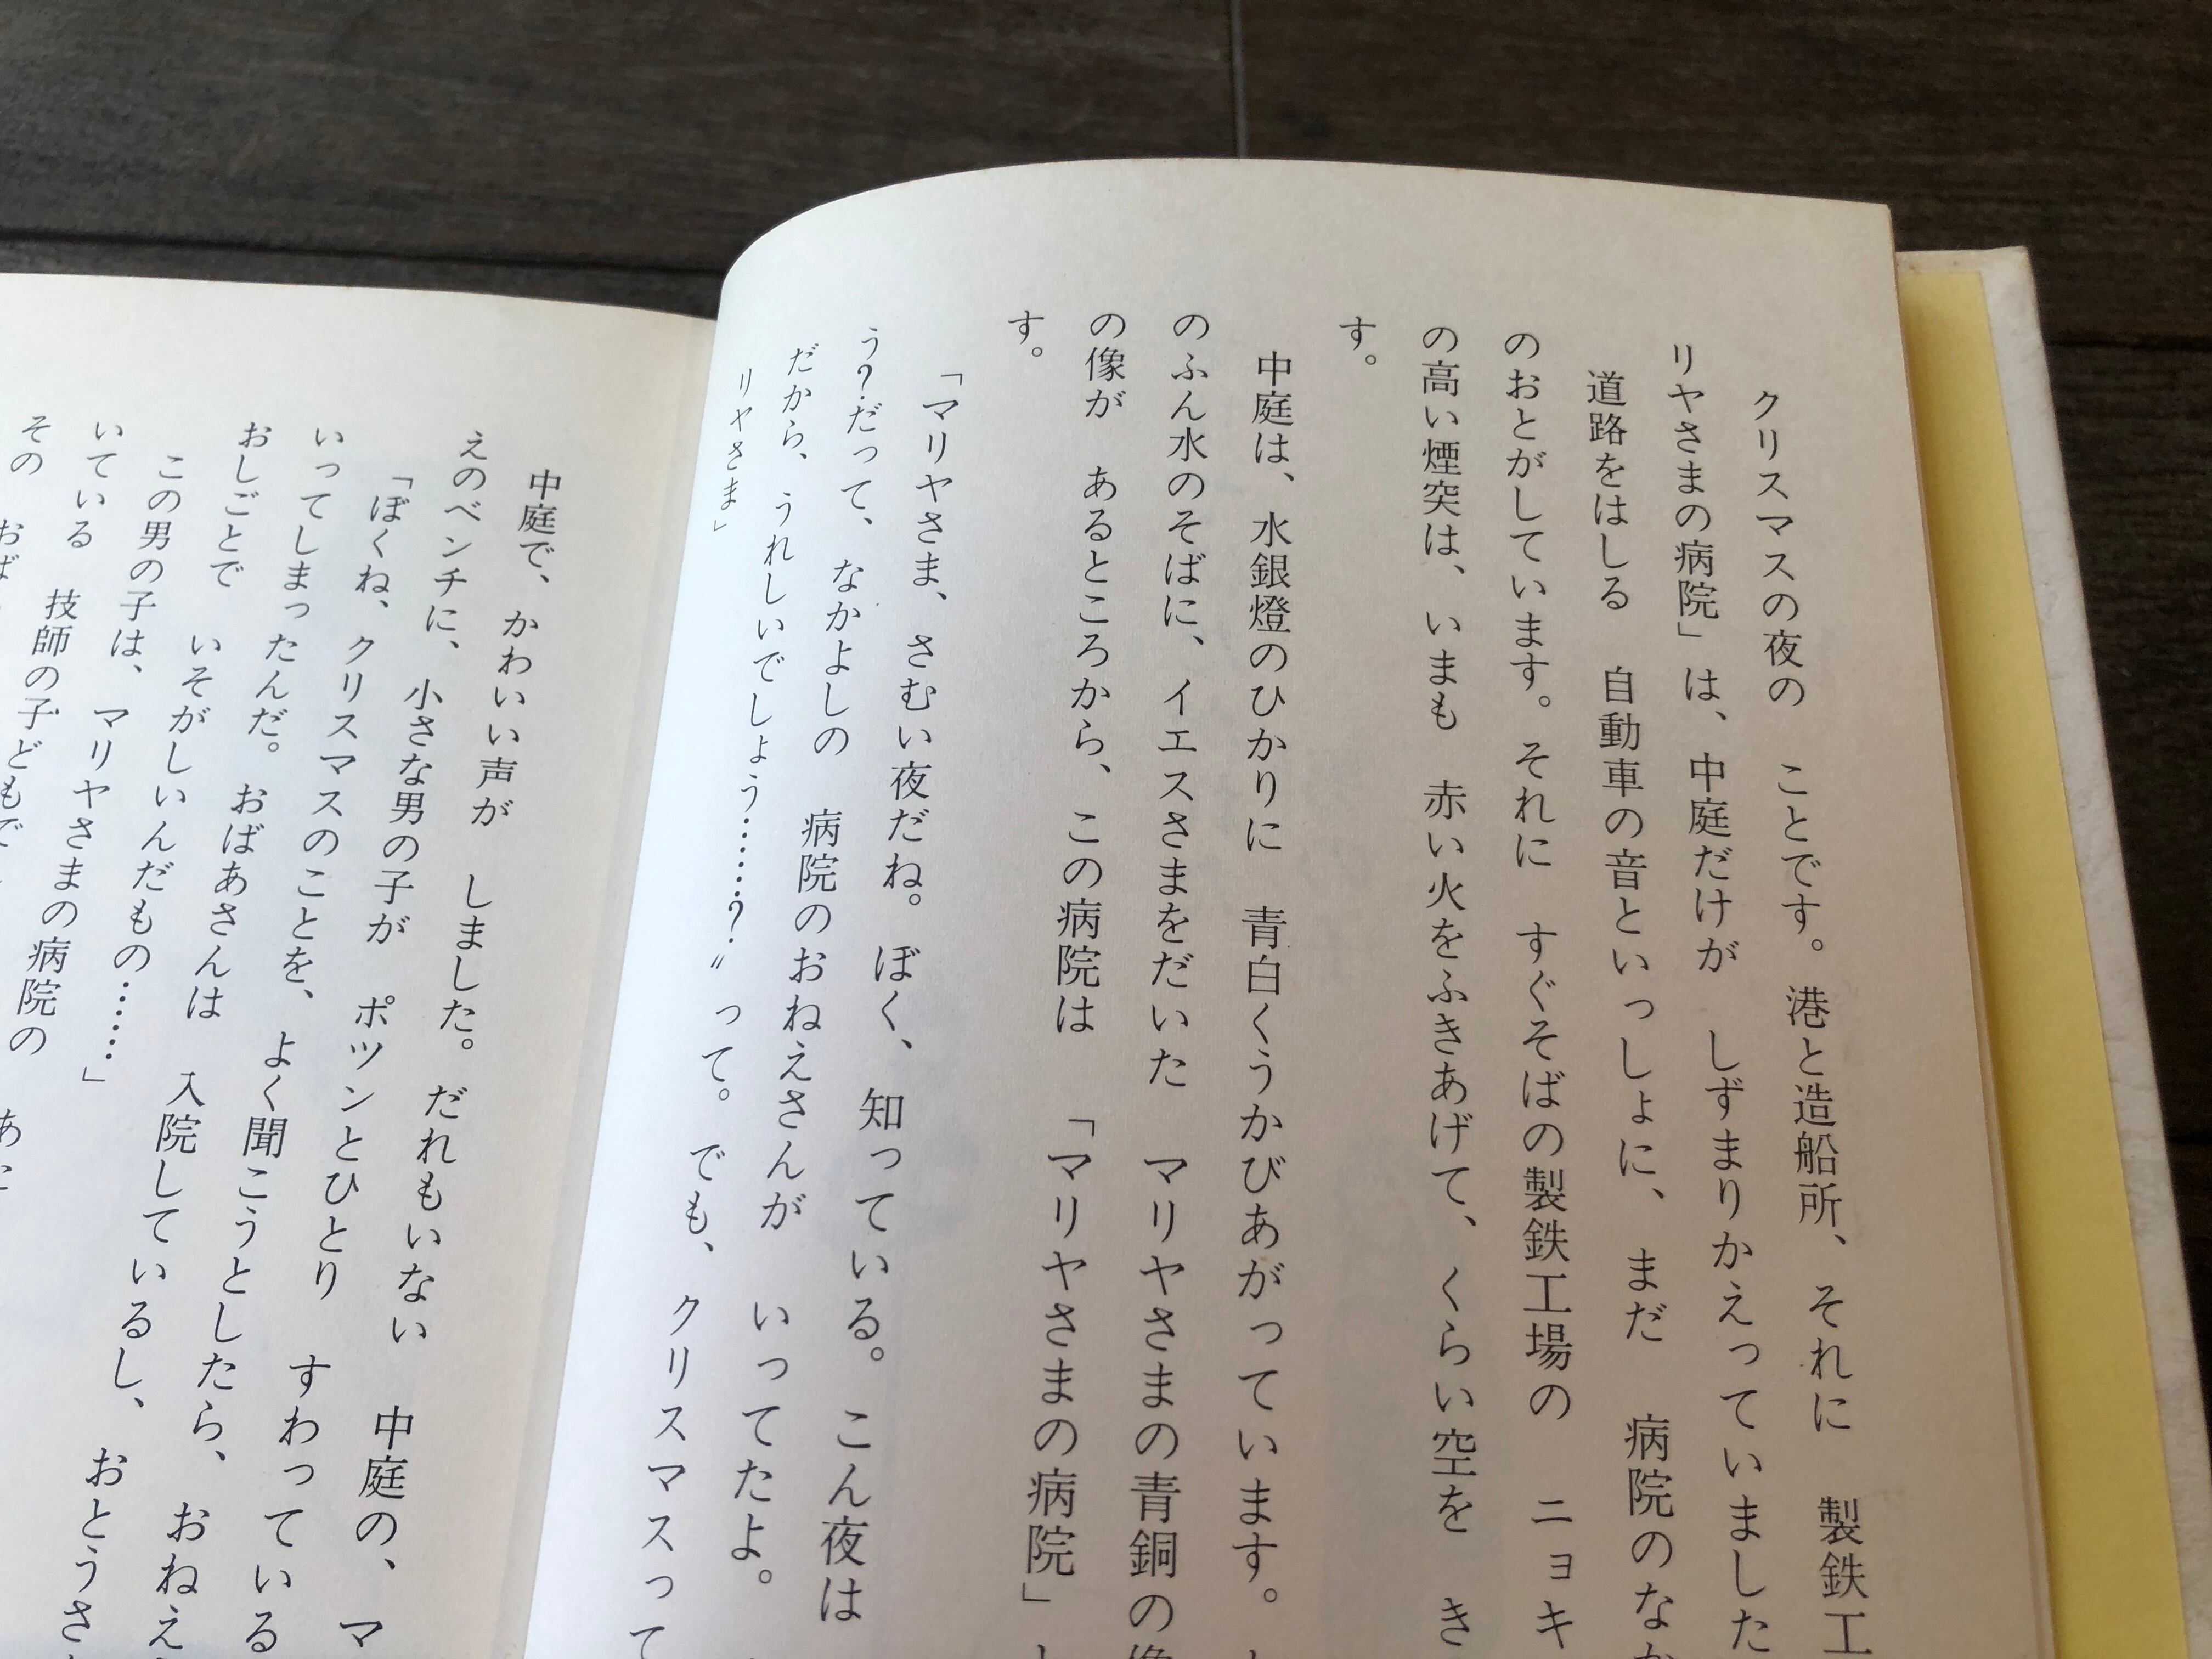 クリスマスの夜の　ことです。港と造船所、それに　製鉄工
リヤさまの病院」は、中庭だけが　しずまりかえっていました
道路をはしる　自動車の音といっしょに、まだ　病院のなか
のおとがしています。それに　すぐそばの製鉄工場の　ニョキ
の高い煙突は、いまも　赤い火をふきあげて、くらい空を　き
す。
中庭は、水銀燈のひかりに　青白くうかびあがっています。
のふん水のそばに、イエスさまをだいた　マリヤさまの青銅の像
の像が　あるところから、この病院は　「マリヤさまの病院」
す。
「マリヤさま、さむい夜だね。ぼく、知っている。こん夜は
う？だって、なかよしの　病院のおねえさんが　いってたよ。
だから、うれしいでしょう……？〟って。でも、クリスマスって
リヤさま」
中庭で、かわいい声が　しました。だれもいない　中庭の、マ
えのベンチに、小さな男の子が　ポツンとひとり　すわっている
「ぼくね、クリスマスのことを、よく聞こうとしたら、おねえ
いってしまったんだ。おばあさんは　入院しているし、おとうさ
おしごとで　いそがしいんだもの……」
この男の子は、マリヤさまの病院の
いている　技師の子どもで
その　おば